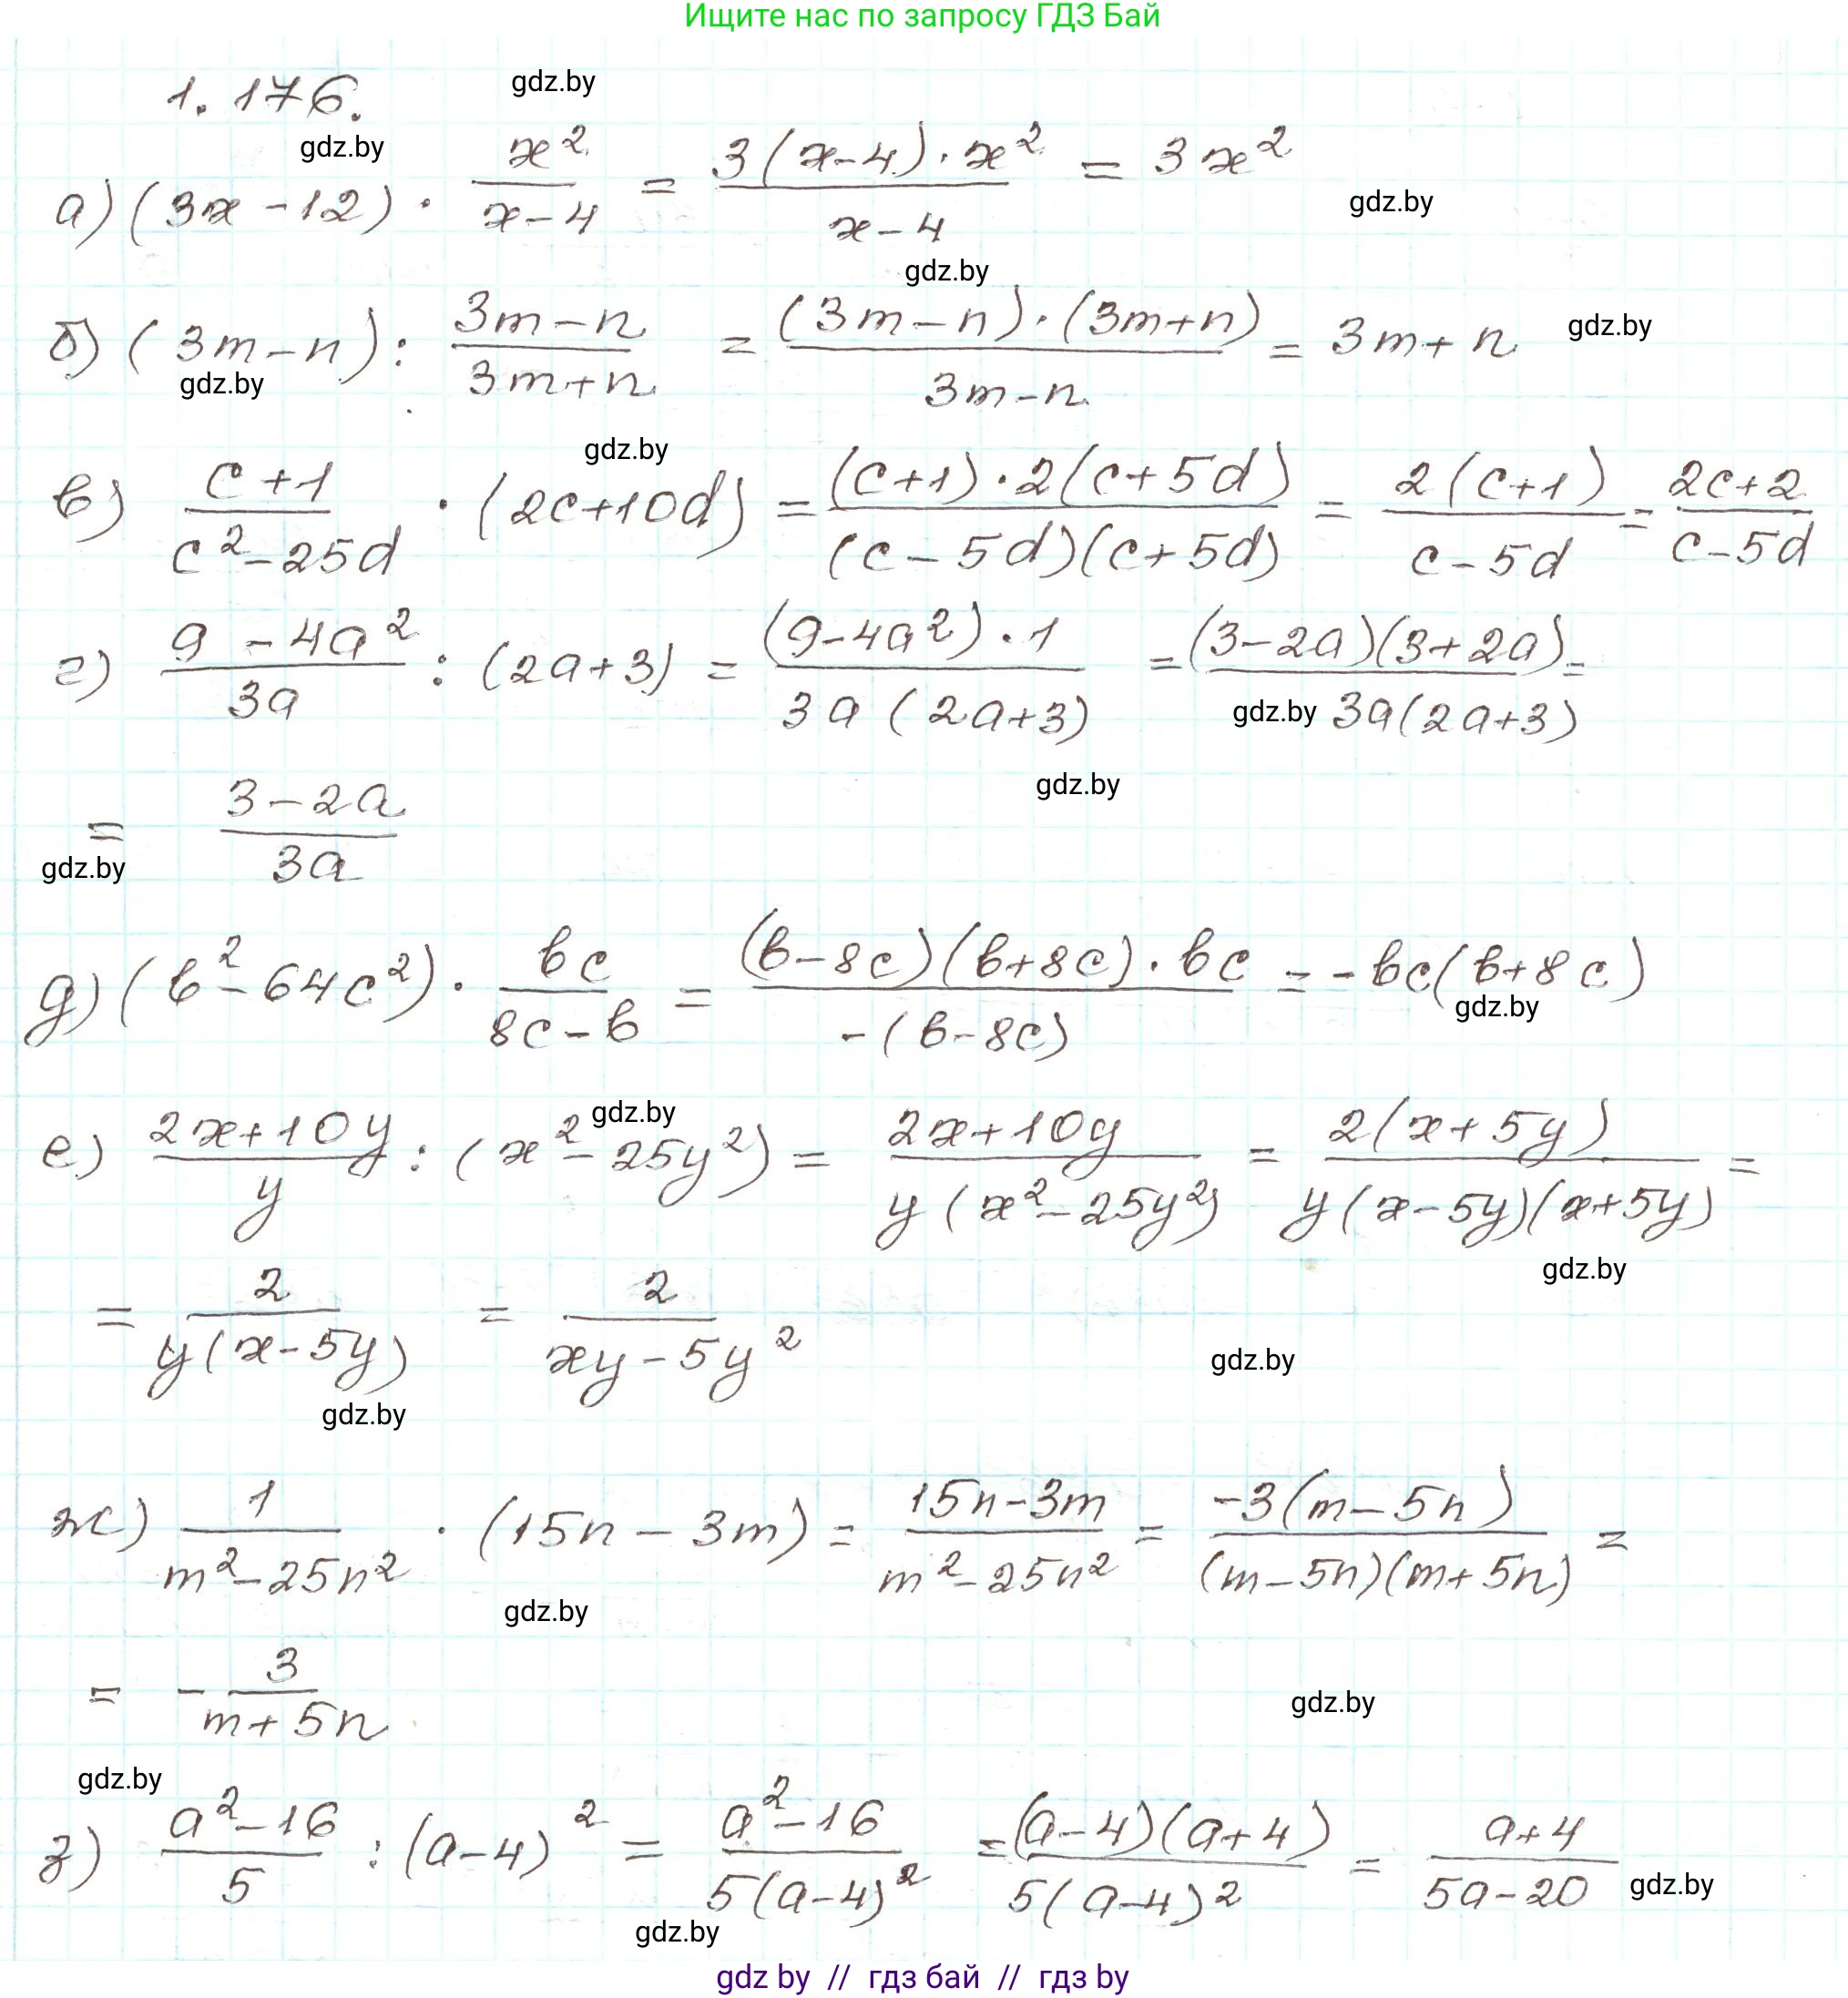 Ищите нас по запросу ГДЗ Бай
1.176.
gdz.by
gdz.by
а) (3x - 12) · x²/(x - 4) = 3(x - 4) · x²/(x - 4) = 3x²
gdz.by
gdz.by
б) (3m - n) : (3m - n)/(3m + n) = (3m - n) · (3m + n)/(3m - n) = 3m + n
gdz.by
gdz.by
gdz.by
в) (c + 1)/(c² - 25d) · (2c + 10d) = (c + 1) · 2(c + 5d)/((c - 5d)(c + 5d)) = 2(c + 1)/(c - 5d) = (2c + 2)/(c - 5d)
г) (9 - 4a²)/(3a) : (2a + 3) = (9 - 4a²) · 1/(3a(2a + 3)) = (3 - 2a)(3 + 2a)/(3a(2a + 3)) =
gdz.by
gdz.by
= (3 - 2a)/(3a)
gdz.by
д) (b² - 64c²) · bc/(8c - b) = (b - 8c)(b + 8c) · bc/(-(b - 8c)) = -bc(b + 8c)
gdz.by
gdz.by
е) (2x + 10y)/y : (x² - 25y²) = (2x + 10y)/(y(x² - 25y²)) = 2(x + 5y)/(y(x - 5y)(x + 5y)) =
gdz.by
= 2/(y(x - 5y)) = 2/(xy - 5y²)
gdz.by
gdz.by
ж) 1/(m² - 25n²) · (15n - 3m) = (15n - 3m)/(m² - 25n²) = -3(m - 5n)/((m - 5n)(m + 5n)) =
gdz.by
= - 3/(m + 5n)
gdz.by
gdz.by
з) (a² - 16)/5 : (a - 4)² = (a² - 16)/(5(a - 4)²) = (a - 4)(a + 4)/(5(a - 4)²) = (a + 4)/(5a - 20)
gdz.by
gdz.by
gdz by // гдз бай // гдз by